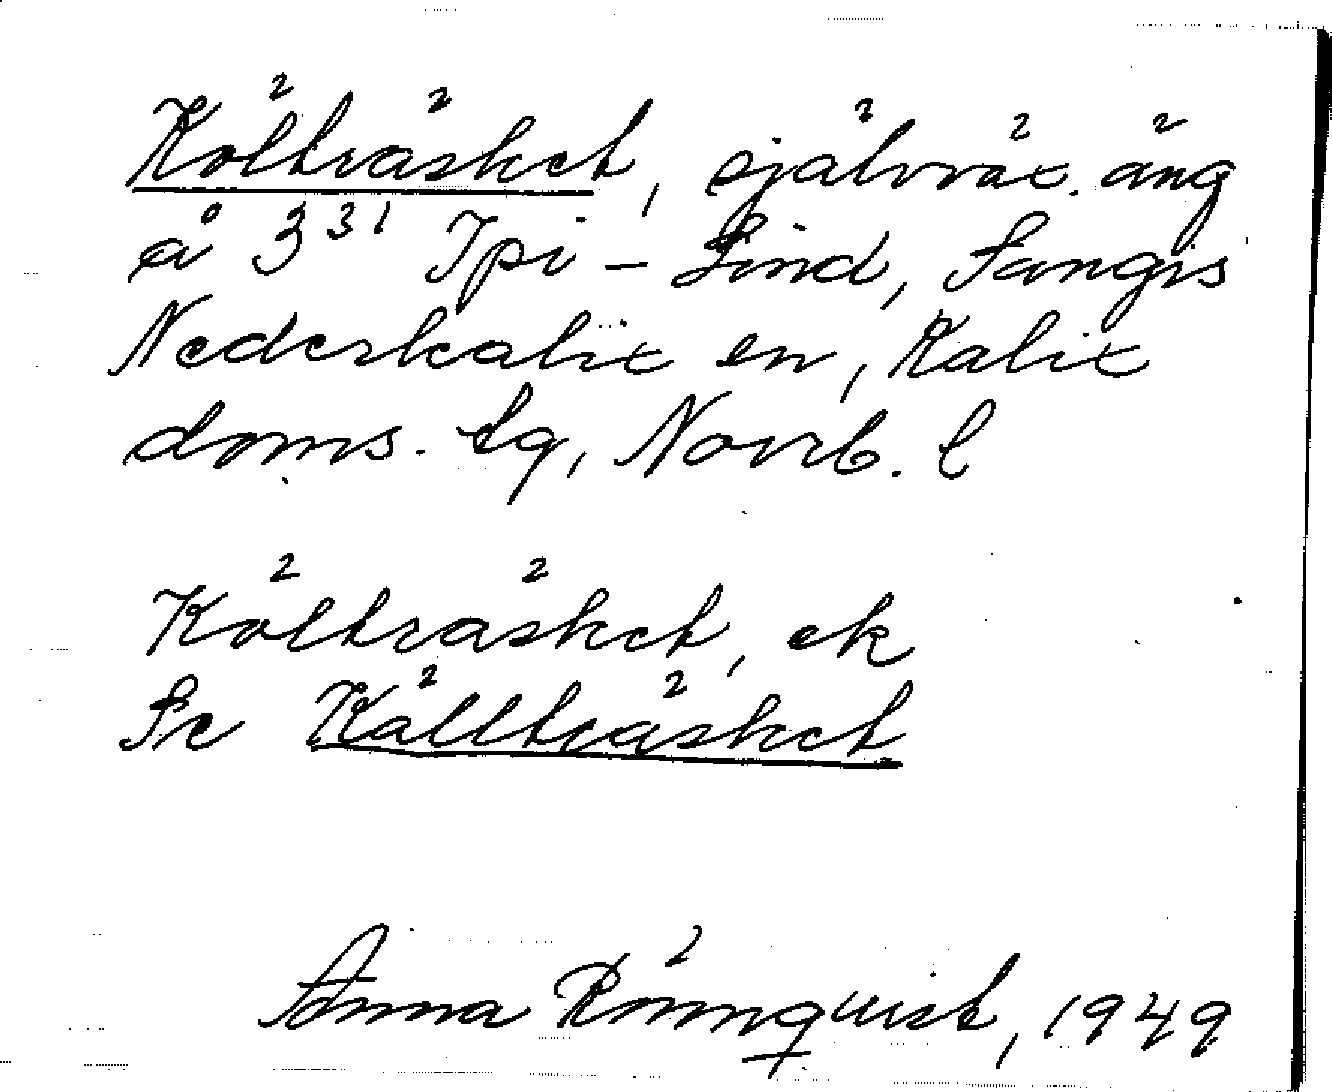 Költräsket, självväx. äng
å 3 31 Ipi - Lind, Sangis
Nederkalix sn, Kalix
doms. sg, Norrb. l
Költräsket, ek
Se Källträsket
Anna Rönnquist, 1949